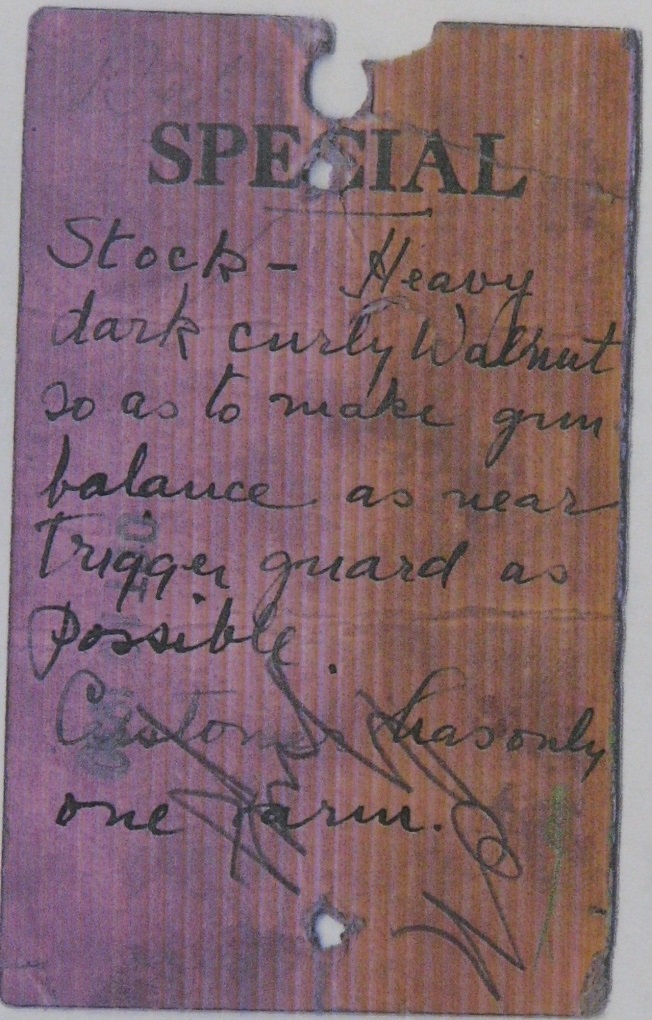 SPECIAL
Stock - Heavy
dark curly Walnut
so as to make gun
balance as near
trigger guard as
possible.
Customer has only
one arm.